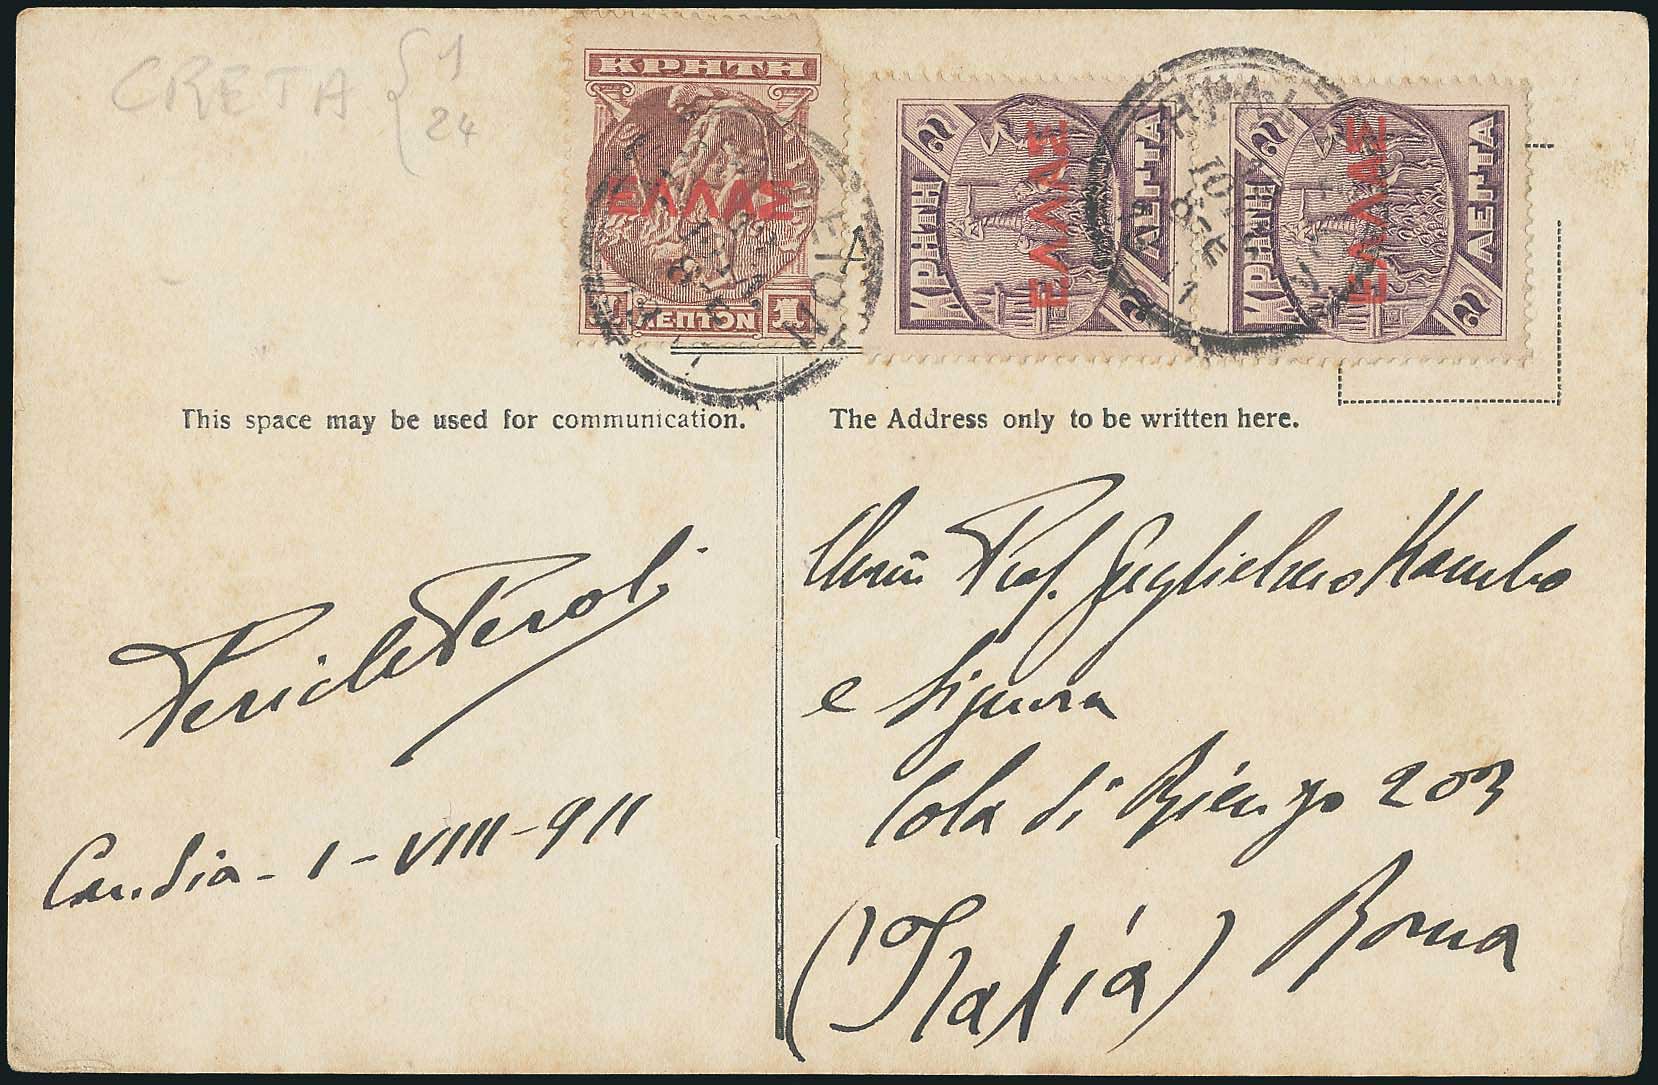 CRETA { 1
24
ΚΡΗΤΗ
ΕΛΛΑΣ
1 ΛΕΠΤΟΝ 1
2 ΛΕΠΤΑ 2
ΚΡΗΤΗ
ΕΛΛΑΣ
2 ΛΕΠΤΑ 2
ΚΡΗΤΗ
ΕΛΛΑΣ
This space may be used for communication.
The Address only to be written here.
Pericle Perali
Candia - 1 - VIII - 911
Prof. Guglielmo Kambo
e Signora
Cola di Rienzo 203
Roma
(Italia)